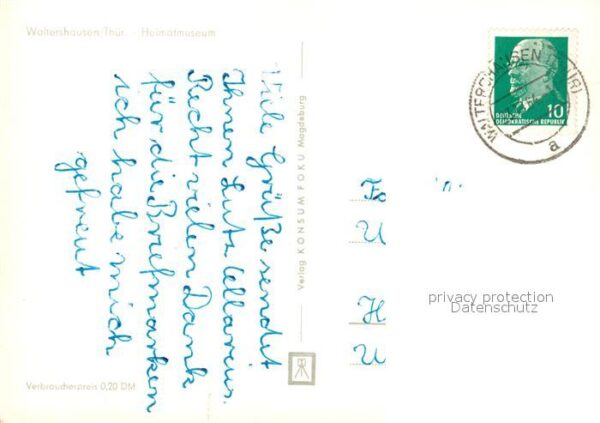 Waltershausen/Thür. - Heimatmuseum
Viele Grüße sendet
Ihnen Lutz
Recht vielen Dank
für die Briefmarken
ich habe mich
gefreut
Verlag KONSUM FOKU Magdeburg
Verbraucherpreis 0,20 DM
WALTERSHAUSEN
a
10
DEUTSCHE
DEMOKRATISCHE REPUBLIK
Fa
U
H
U
privacy protection
Datenschutz